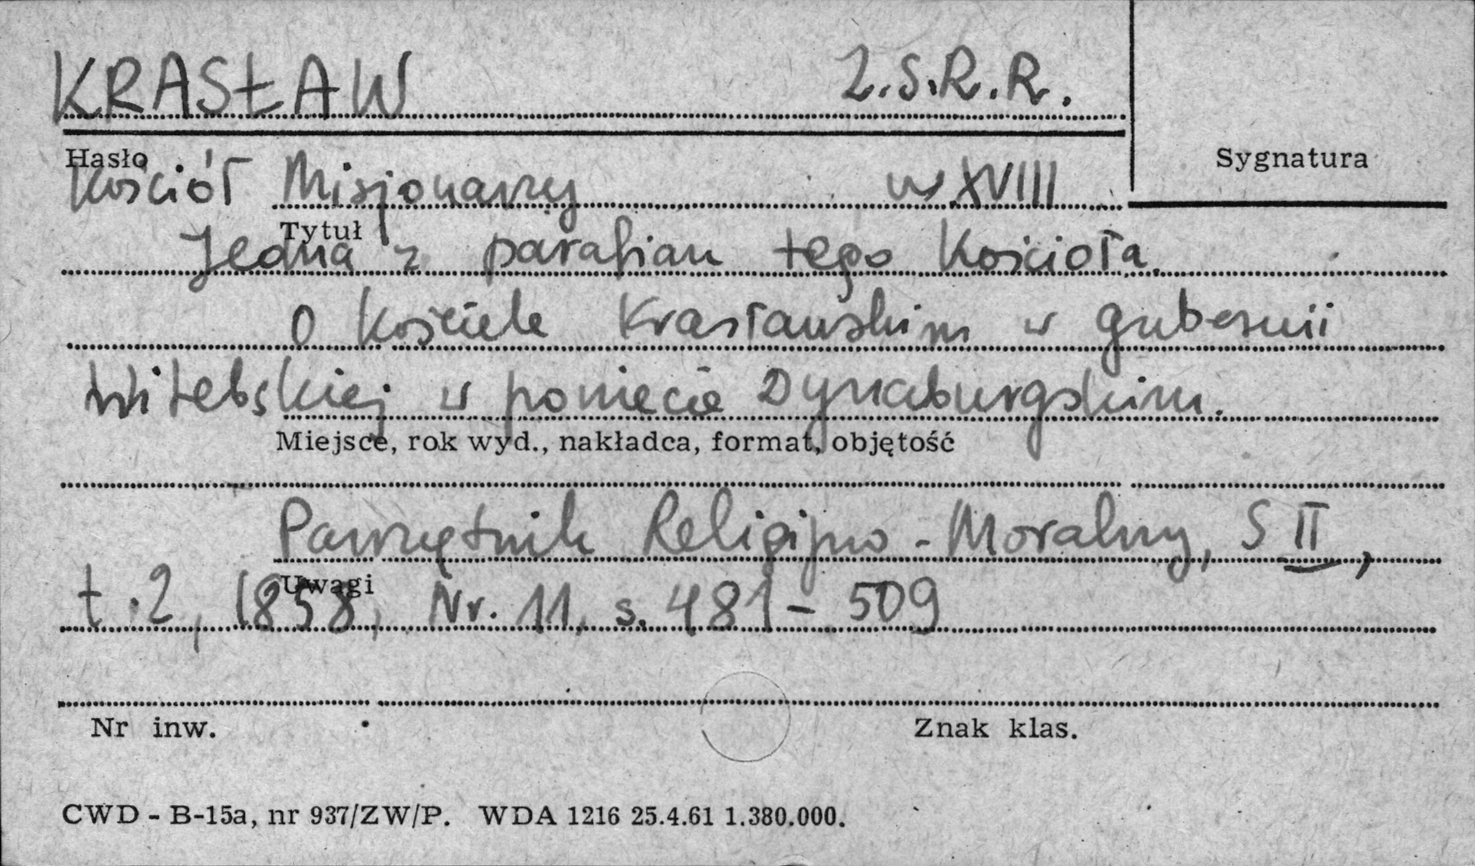 KRASŁAW Z.S.R.R.
Hasło
Sygnatura
Kościół Misjonarzy w XVIII
Tytuł
Jedna z parafian tego Kościoła.
O kościele Krasławskim w gubernii
Witebskiej w powiecie Dynaburgskim.
Miejsce, rok wyd., nakładca, format, objętość
Pamiętnik Religijno-Moralny, S II,
Uwagi
t.2, 1858, Nr. 11, s. 481-509
Nr inw. Znak klas.
CWD - B-15a, nr 937/ZW/P. WDA 1216 25.4.61 1.380.000.